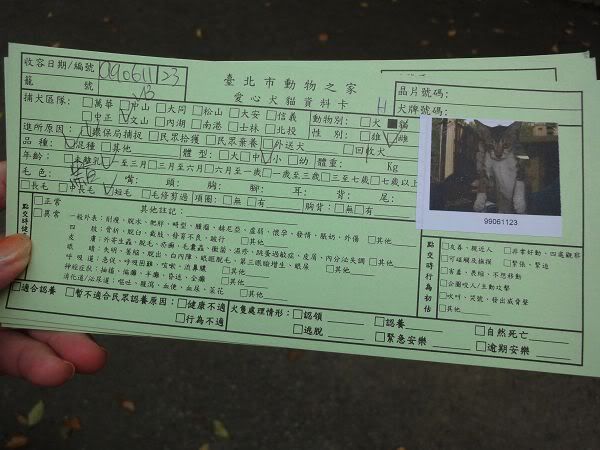 收容日期/編號 090611 23
臺北市動物之家
晶片號碼:
籠 號
愛心犬貓資料卡
犬牌號碼:
捕犬區隊: □萬華 □中山 □大同 □松山 □大安 □信義
動物別: □犬 ■貓
□中正 □文山 □內湖 □南港 □士林 □北投
性 別: □雄 □雌
進所原因: □環保局捕捉 □民眾拾獲 □民眾棄養 □外送犬 □回收犬
品 種: □混種 □其他
體 型: □大 □中 □小 □幼 體重: Kg
年齡: □未離乳 □一至三月 □三月至六月 □六月至一歲 □一歲至三歲 □三歲至七歲 □七歲以上
毛 色: 嘴: 頭: 胸: 腳: 耳: 背: 尾:
□長毛 □中長毛 □短毛 □毛修剪過 項圈: □無 □有 胸背: □無 □有
99061123
□正常
□異常
其他註記:
一般外表: 耐瘦、脫水、肥胖、畸型、腫瘤、赫尼亞、虛弱、懷孕、發情、脹奶、外傷 □其他
四 肢: 骨折、脫臼、截肢、發育不良、跛行 □其他
皮 膚: 外寄生蟲、脫毛、疥癬、毛囊蟲、黴菌、濕疹、跳蚤過敏症、皮屑、內分泌失調 □其他
眼 睛: 失明、萎縮、脫出、白內障、眼瞼脫毛、第三眼瞼增生、眼屎 □其他
呼吸道: 急促、呼吸困難、咳嗽、流鼻膿 □其他
神經症狀: 抽搐、癱瘓、半癱、昏迷、全癱 □其他
消化道/泌尿道: 嘔吐、腹瀉、血便、血尿、芸花 □其他
點交時行為初估
□友善、親近人 □非常好動、四處觀移
□可碰觸及撫摸 □緊張、緊迫
□害羞、畏縮、不想移動
□企圖咬人/主動攻擊
□吹叫、哭號、發出威脅聲
□其他
□適合認養 □暫不適合民眾認養原因: □健康不適
□行為不適
犬隻處理情形: □認領 □認養 □自然死亡
□逃脫 □緊急安樂 □逾期安樂